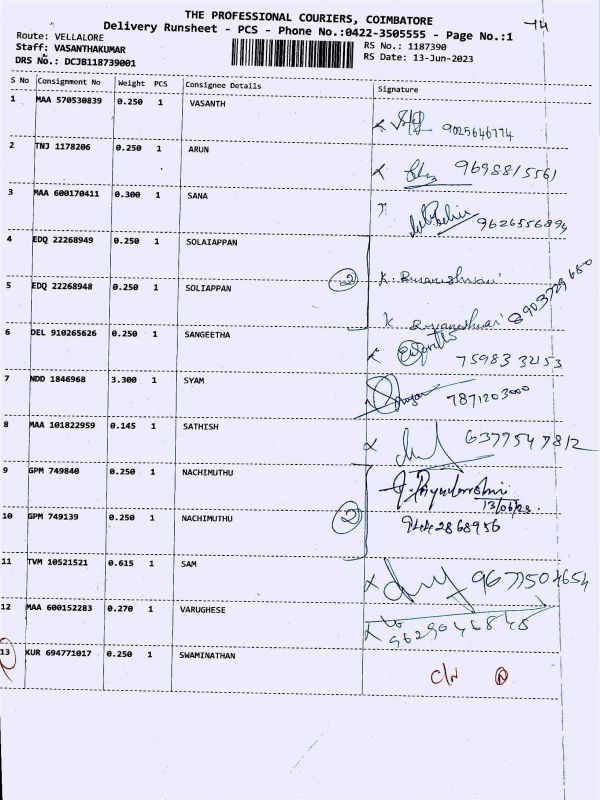 THE PROFESSIONAL COURIERS, COIMBATORE
Delivery Runsheet - PCS - Phone No.:0422-3505555 - Page No.:1
Route: VELLALORE
RS No.: 1187390
Staff: VASANTHAKUMAR
RS Date: 13-Jun-2023
DRS No.: DCJB118739001
S No Consignment No Weight PCS Consignee Details Signature
1 MAA 570530839 0.250 1 VASANTH
9025646774
2 TNJ 1178206 0.250 1 ARUN
9698815561
3 MAA 600170411 0.300 1 SANA
9626556894
4 EDQ 22268949 0.250 1 SOLAIAPPAN
2
5 EDQ 22268948 0.250 1 SOLIAPPAN
6 DEL 910265626 0.250 1 SANGEETHA
75983 32153
7 NDD 1846968 3.300 1 SYAM
7871203000
8 MAA 101822959 0.145 1 SATHISH
9 GPM 749840 0.250 1 NACHIMUTHU
13/06/23.
10 GPM 749139 0.250 1 NACHIMUTHU
2
9442868956
11 TVM 10521521 0.615 1 SAM
12 MAA 600152283 0.270 1 VARUGHESE
9629046848
13 KUR 694771017 0.250 1 SWAMINATHAN
C/N